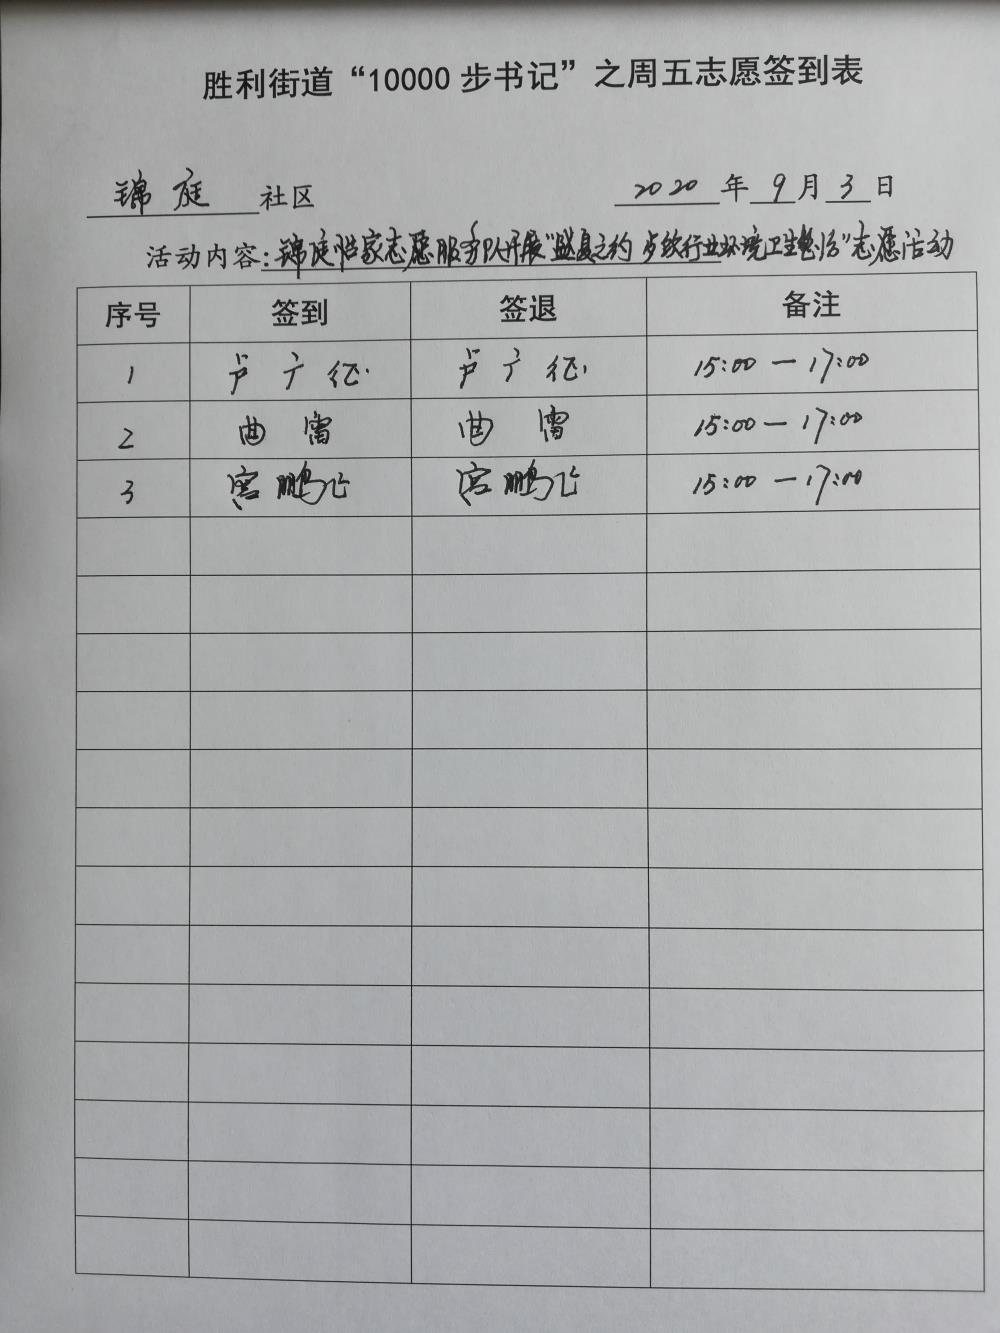 胜利街道“10000步书记”之周五志愿签到表
锦庭 社区 2020 年 9 月 3 日
活动内容:锦庭管家志愿服务队开展“盛夏之约 乒约行业环境卫生整治”志愿活动
序号 签到 签退 备注
1 卢广征 卢广征 15:00—17:00
2 曲雷 曲雷 15:00—17:00
3 宫鹏飞 宫鹏飞 15:00—17:00